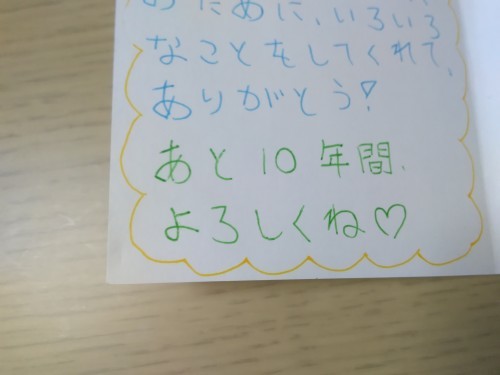 ために、いろいろ
なことをしてくれて、
ありがとう!
あと10年間、
よろしくね♡